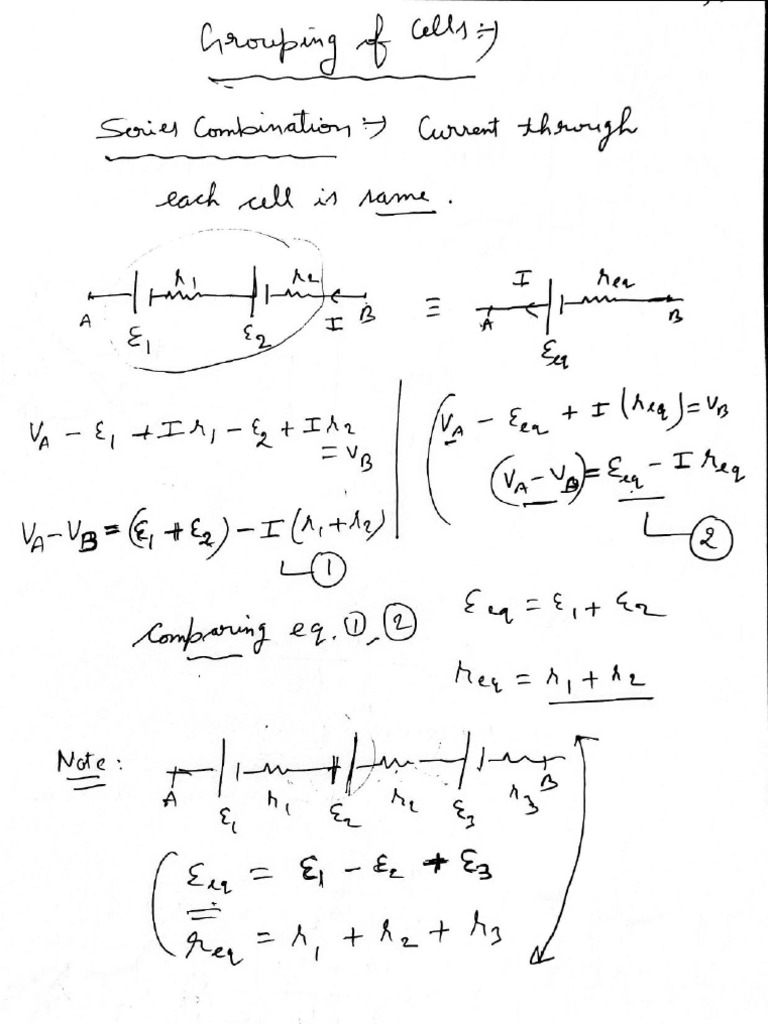 Grouping of Cells :→
Series Combination :→ Current through
each cell is same.
r₁ r₂
A ε₁ ε₂ I B
≡
I r_eq
A ε_eq B
V_A - ε₁ + I r₁ - ε₂ + I r₂
= V_B
V_A - V_B = (ε₁ + ε₂) - I (r₁ + r₂)
①
V_A - ε_eq + I (r_eq) = V_B
(V_A - V_B) = ε_eq - I r_eq
②
Comparing eq. ①, ②
ε_eq = ε₁ + ε₂
r_eq = r₁ + r₂
Note :
A ε₁ r₁ ε₂ r₂ ε₃ r₃ B
ε_eq = ε₁ - ε₂ + ε₃
r_eq = r₁ + r₂ + r₃